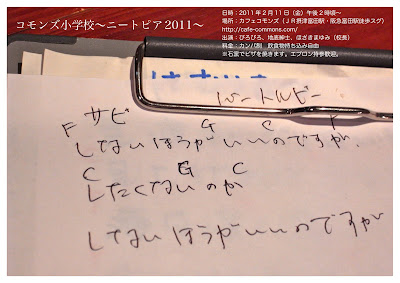 コモンズ小学校〜ニートピア2011〜
日時:2011年2月11日(金)午後2時頃〜
場所:カフェコモンズ(JR摂津富田駅・阪急富田駅徒歩スグ)
http://cafe-commons.com/
出演:ぴろぴろ、地底紳士、ほさきまゆみ(校長)
料金:カンパ制 飲食物持ち込み自由
※石窯でピザを焼きます。エプロン持参歓迎。
バートルビー
サビ
F G C F
しないほうがいいのですが、
C G C
したくないのか
しないほうがいいのですが